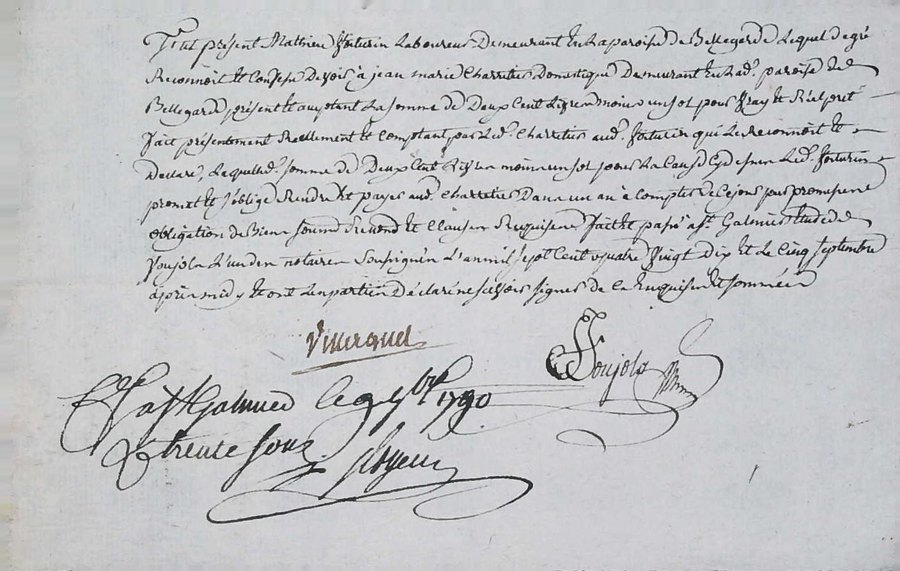 Fut présent Mathieu Torturin Laboureur Demeurant en La paroisse de Bellegarde Lequel de gré
Reconnoit et Confesse Devoir à jean marie Charretier Domestique Demeurant en Lad. paroisse de
Bellegarde présent et acceptant La somme de Deux Cent Livres moins un sol pour Vray et Réel prêt
fait présentement Reellement et Comptant par Led. Charretier aud. torturin qui Le Reconnoit et
Declare, Laquelled. somme de Deux Cent Livres moins un sol pour La Cause Cy dessus Led. torturin
promet et s'oblige Rendre et payer aud. Charretier Dans un an à Compter de Ce jour par promesse
obligation de Biens soumis Renond et Clauses Requises fait et passé a St. Galmier Etude de
Poujols L'un des notaires Soussignés L'an mil sept Cent quatre Vingt Dix et Le Cinq septembre
après midy et ont Les parties Déclaré ne scavoir signer de Ce Enquises et sommées
Poujols
Cé a St Galmier le 9 7bre 1790
trente sous